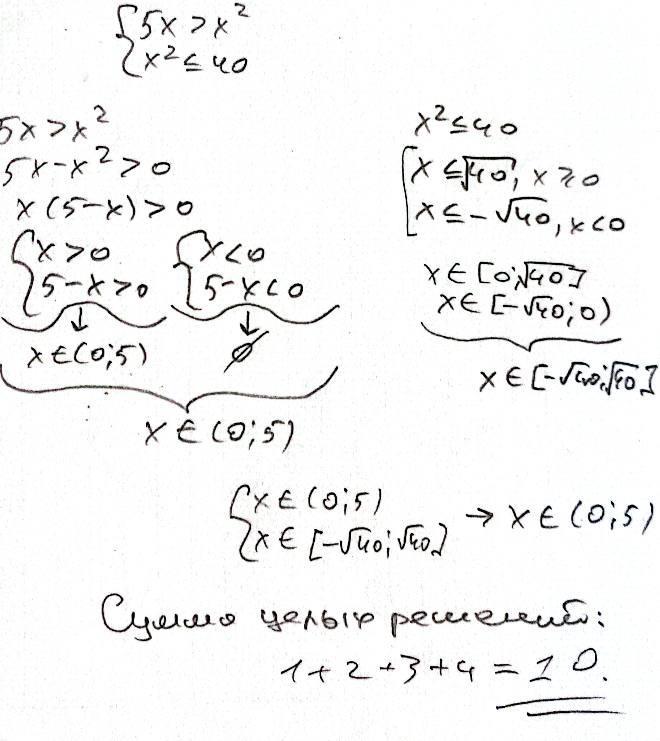 {5x > x²
{x² ≤ 40
5x > x²
5x - x² > 0
x(5-x) > 0
{x > 0
{5-x > 0
↓
x ∈ (0;5)
{x < 0
{5-x < 0
↓
∅
x ∈ (0;5)
x² ≤ 40
[x ≤ √40, x ≥ 0
[x ≤ -√40, x < 0
x ∈ [0;√40]
x ∈ [-√40;0)
x ∈ [-√40;√40]
{x ∈ (0;5)
{x ∈ [-√40;√40] → x ∈ (0;5)
Сумма целых решений:
1+2+3+4 = 10.